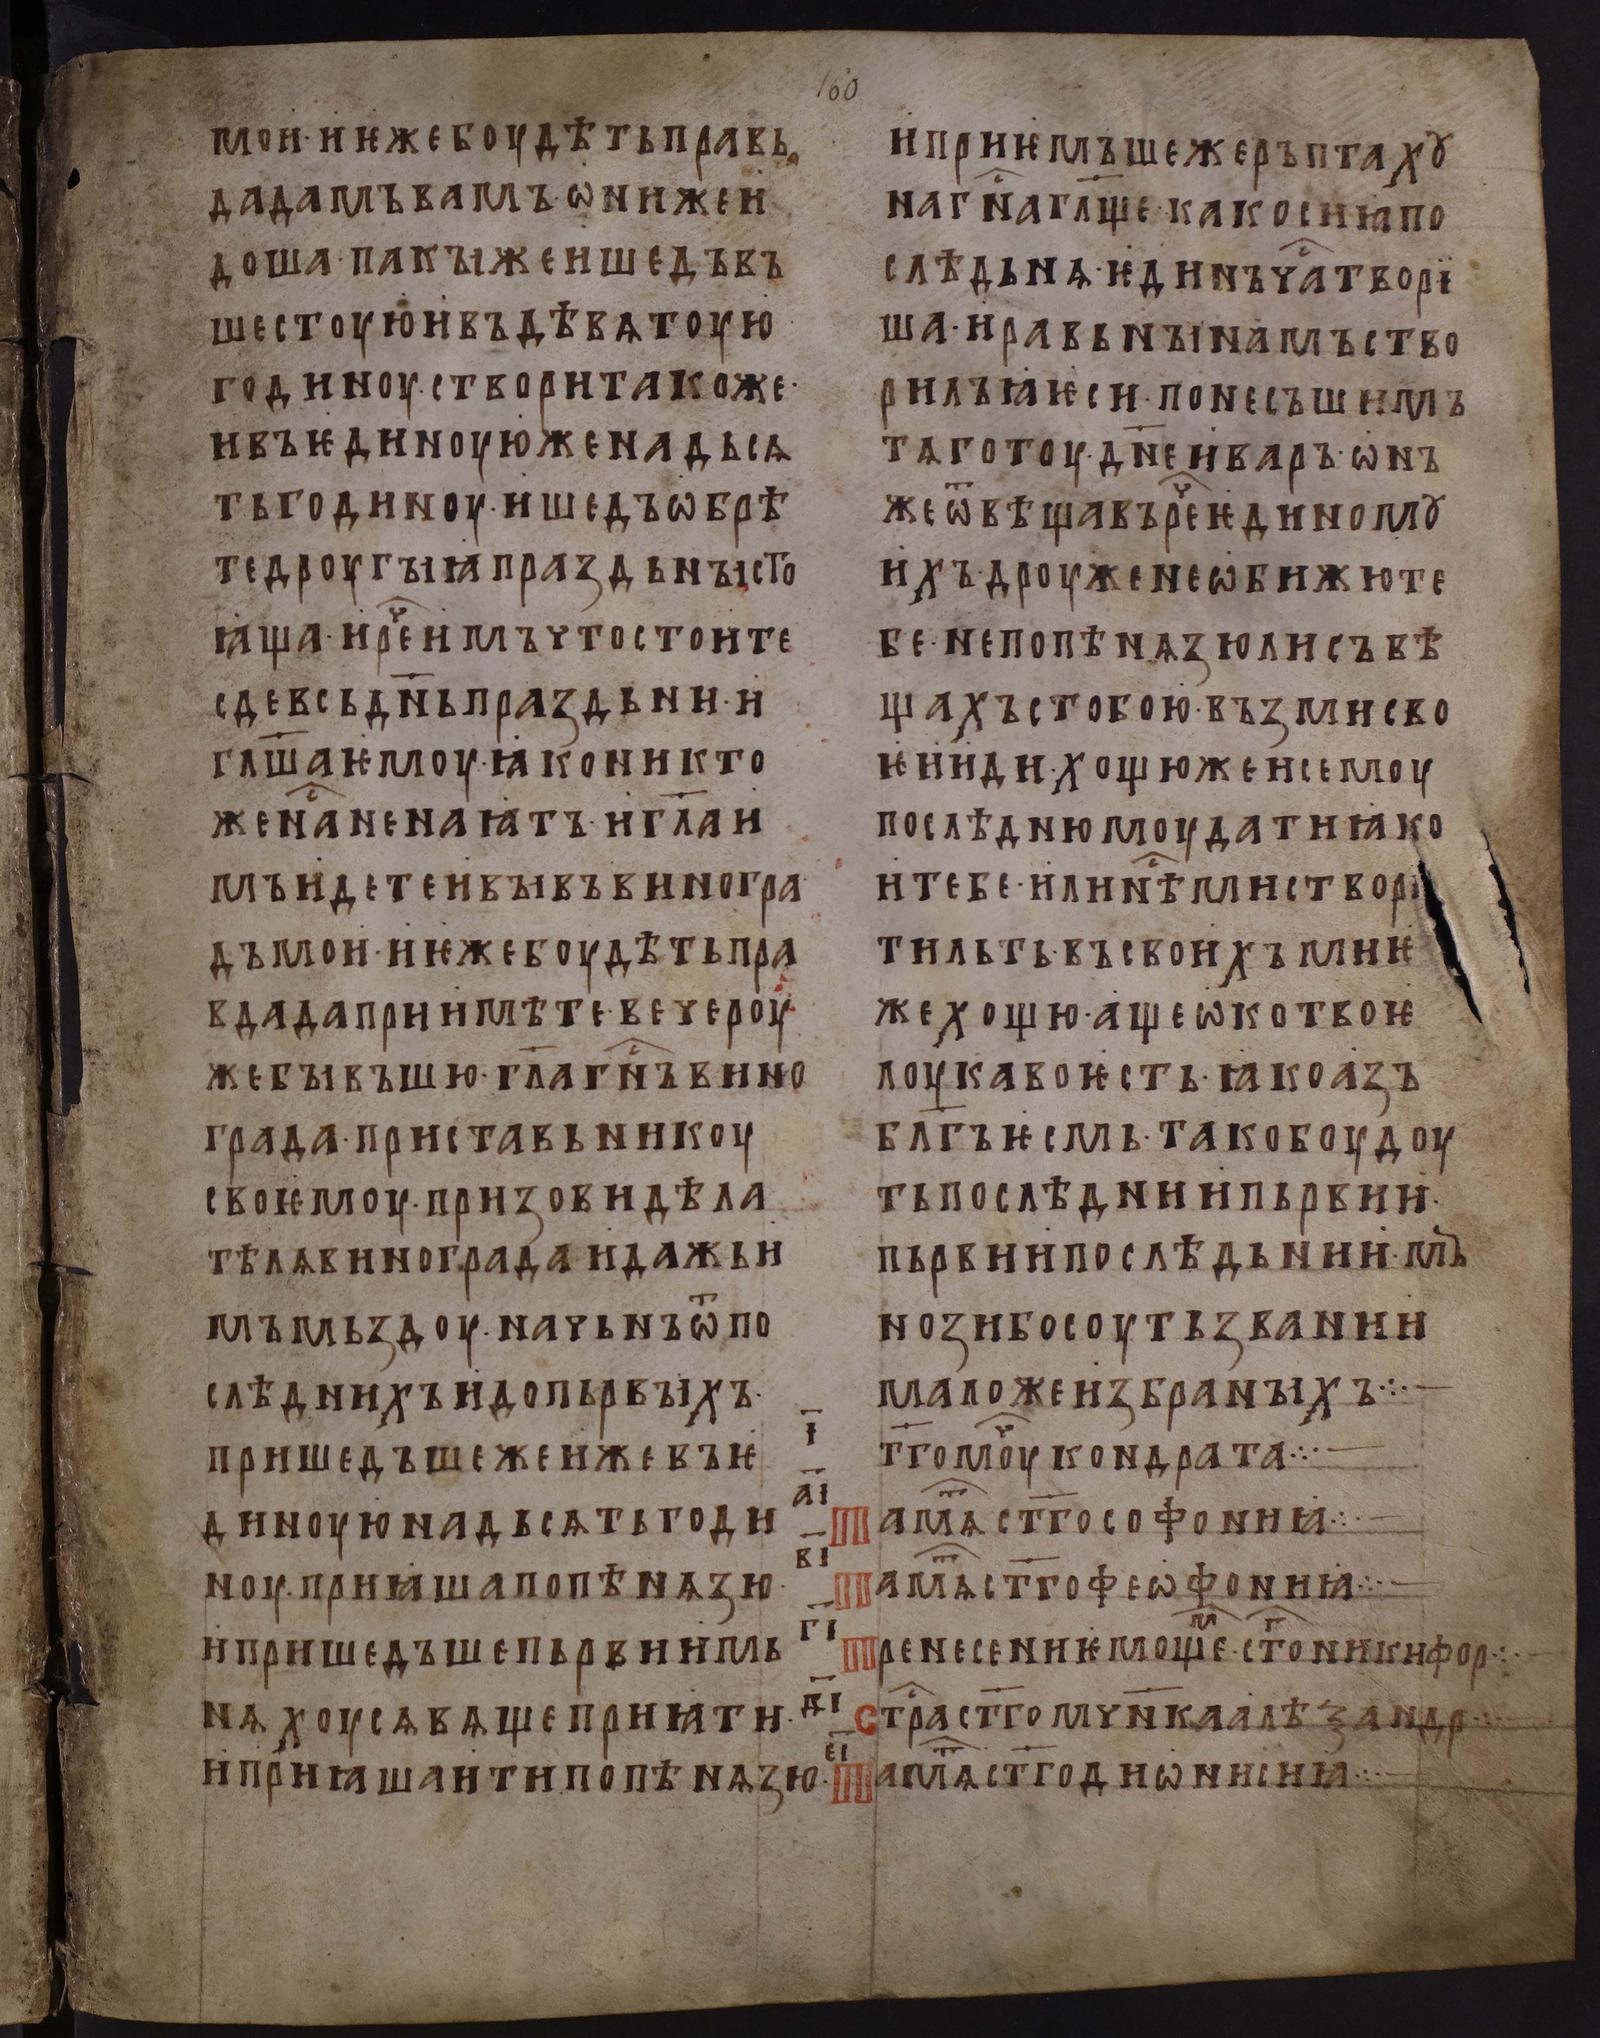 160
мои· и ѥже боудѣть правь
да дамъ вамъ· ѡни же и
доша· пакꙑ же ишедъ въ
шестоую и въ дѣвѧтоую
годиноу· створи такоже·
и въ ѥдиноую же надьсѧ
ть годиноу· ишедъ ѡбрѣ
те дроугꙑꙗ праздьнꙑ сто
ꙗща· и рече имъ что стоите
сде всь дн҃ь праздьни· и
гл҃ша ѥмоу· ꙗко никто
же насъ не наꙗтъ· и гл҃а и
мъ идете и вꙑ въ виногра
дъ мои· и ѥже боудѣть пра
вда да приимѣте· вечероу
же бꙑвъшю· гл҃а гнⷭ҇ъ вино
града· приставьникоу
своѥмоу· призови дѣла
тѣлѧ винограда и дажь и
мъ мьздоу· начьнъ ѿ по
слѣднихъ и до пьрвꙑхъ·
пришедъше же иже въ ѥ
диноую надьсѧть годи
ноу· приꙗша по пѣнѧзю·
и пришедъше пьрвии мь
нѧхоу сѧ вѧще приꙗти·
и приꙗша и ти по пѣнѧзю·
и приѥмъше же ръптахꙋ
на гнⷭ҇а гл҃ще· како сиꙗ по
слѣдьнѧ· ѥдинъ чаⷭ҇ твори
ша· и равьнꙑ намъ ство
рилъ ꙗ ѥси· понесъшимъ
тѧготоу дн҃е и варъ· ѡнъ
же ѿвѣщавъ реⷱ҇ ѥдиномꙋ
ихъ· дроуже не ѡбижю те
бе· не по пѣнѧзю ли съвѣ
щахъ с тобою· възми сво
ѥ и иди· хощю же и семоу
последнюмоу дати ꙗко
и тебе· или нѣⷭ҇ ми створи
ти льть· въ своихъ ми ѥ
же хощю· аще ѡко твоѥ
лоукаво ѥсть· ꙗко азъ
бл҃гъ ѥсмь· тако боудоу
ть послѣднии пьрвии·
пьрвии послѣдьнии· мъ
нози бо соуть звании
мало же избранꙑхъ·:·—
і҃ ст҃го моуⷱ҇ кондрата·:·—
а҃і Памѧⷮ ст҃го софониꙗ·:·—
в҃і Памѧⷮ ст҃го феѡфониꙗ·:·—
г҃і Пренесениѥ моще· ст҃го никифор·:·
д҃і Стрⷭ҇а ст҃го мчн҃ка алѣзандр·:·
е҃і Памѧⷮ ст҃го диѡнисиꙗ·:·—